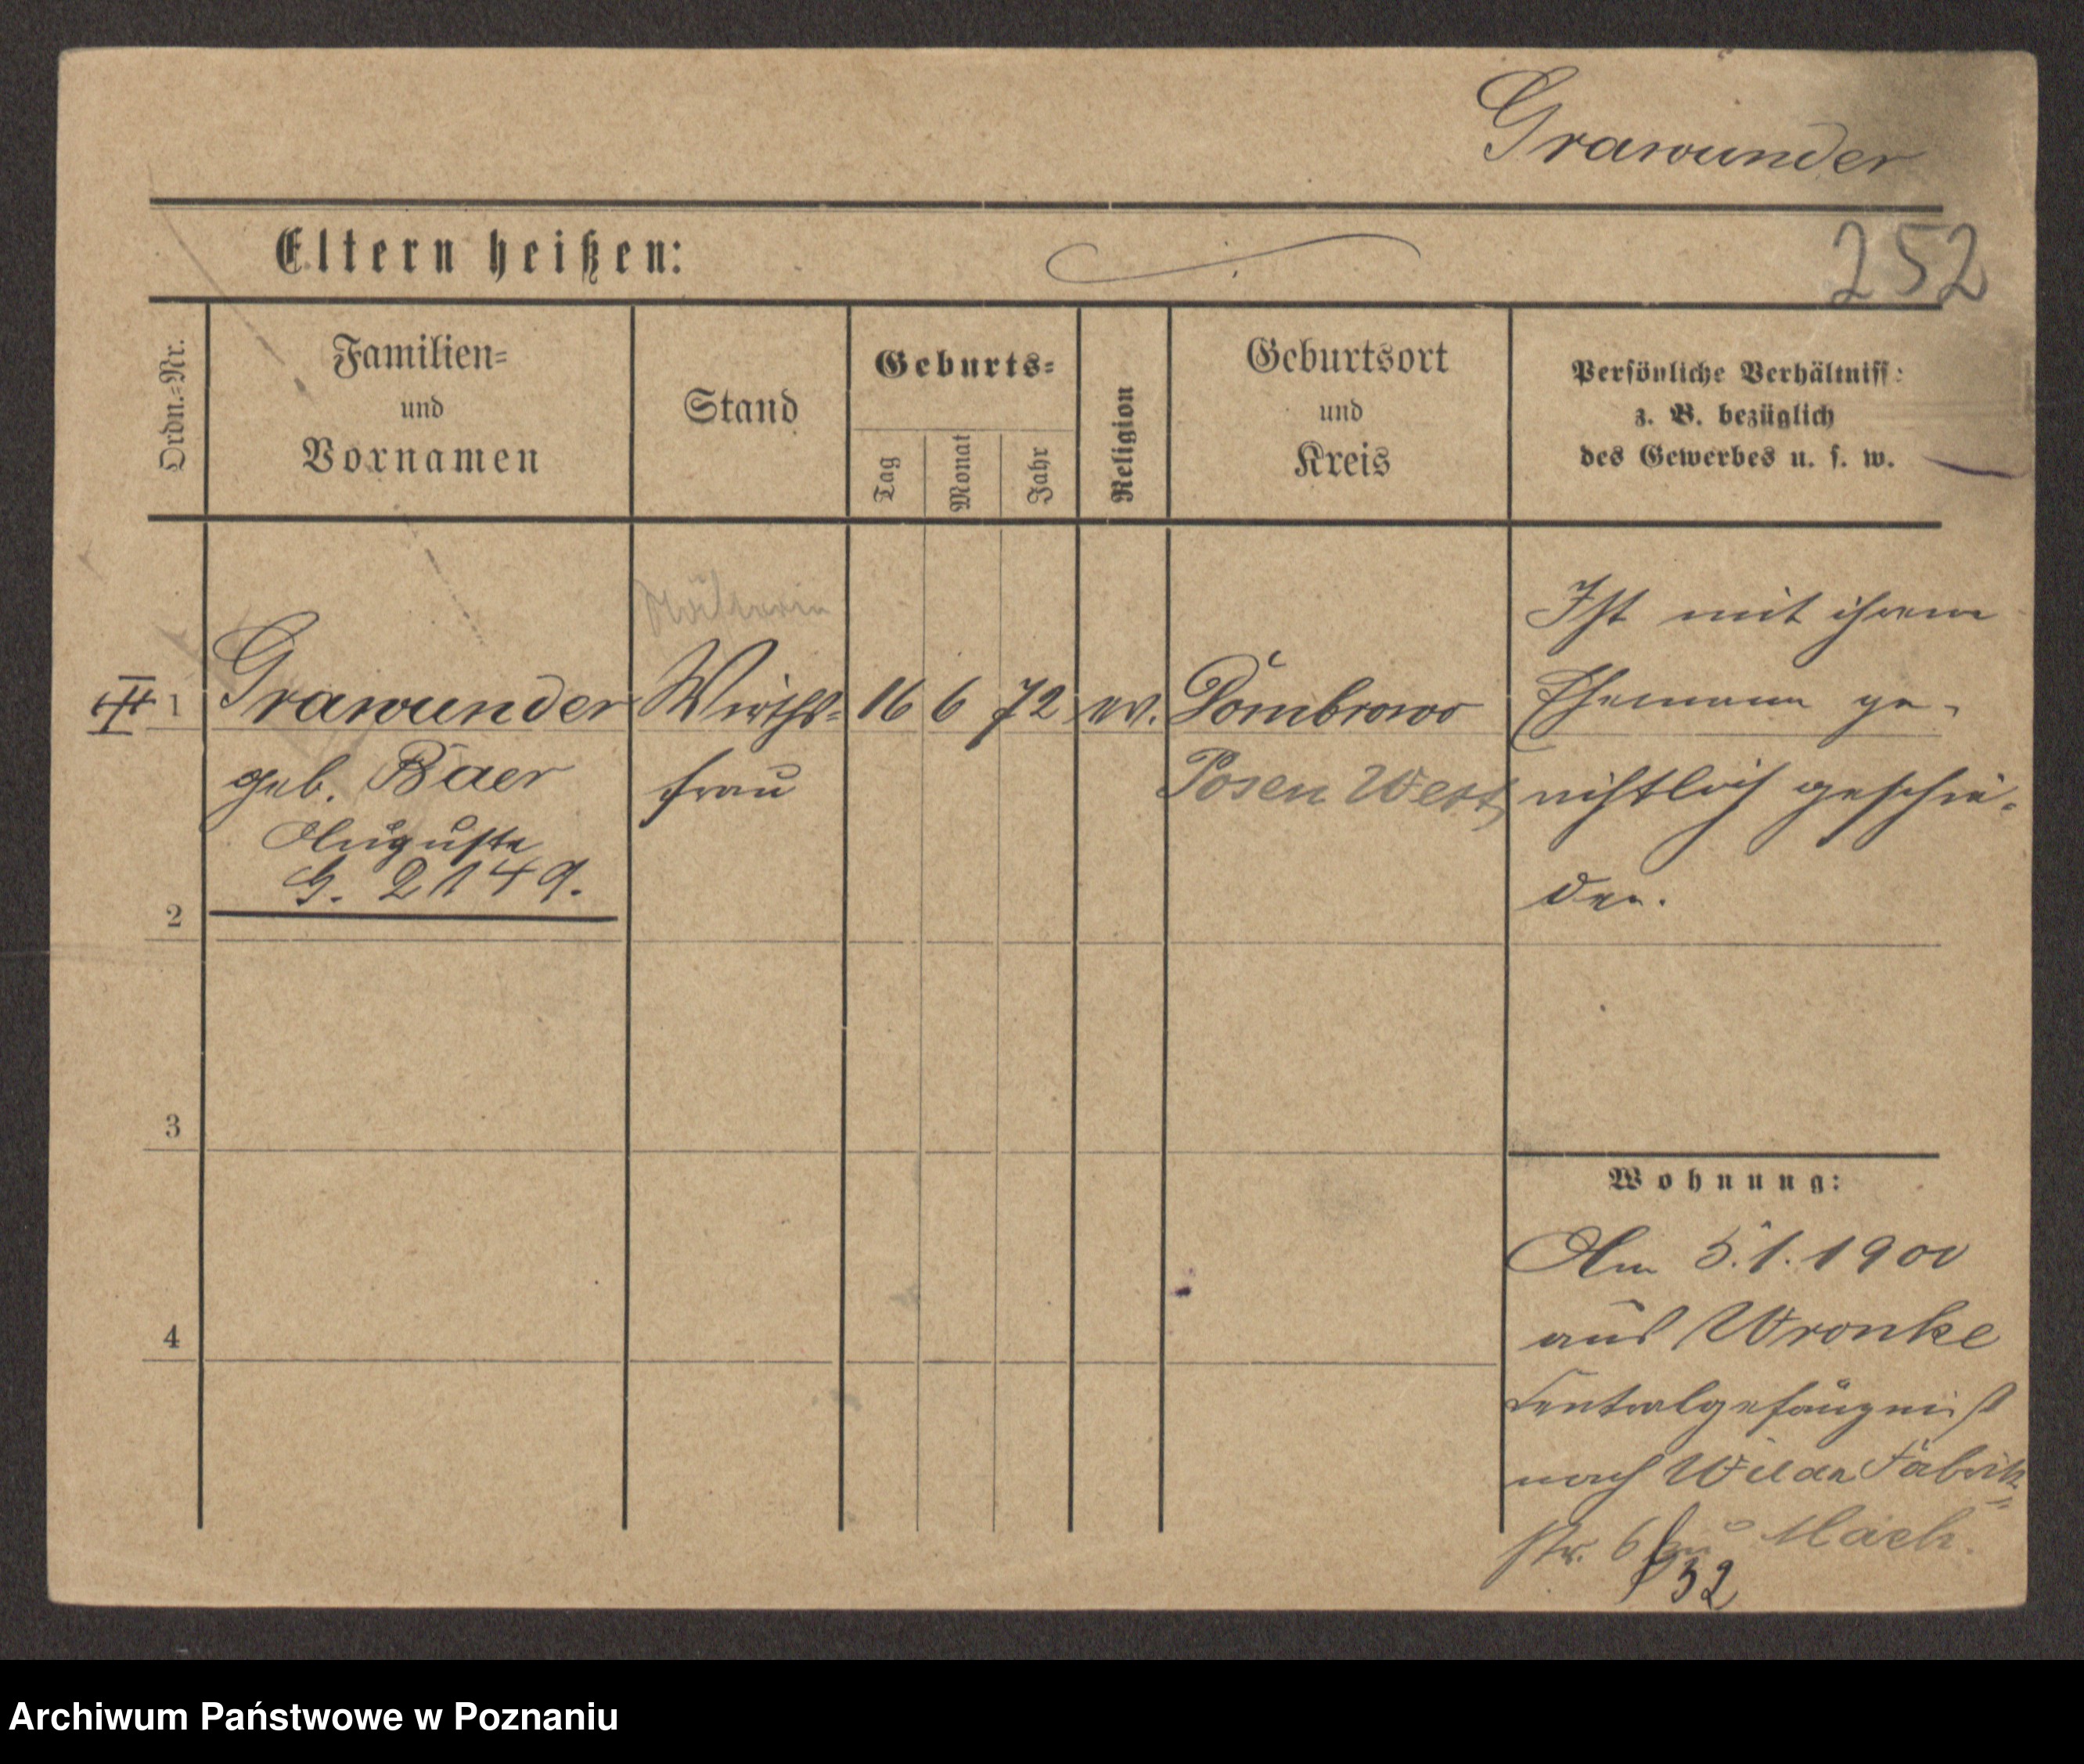 Grawunder
Eltern heißen:
252
Ordn.-Nr.
Familien-
und
Vornamen
Stand
Geburts-
Tag
Monat
Jahr
Religion
Geburtsort
und
Kreis
Persönliche Verhältniss:
z. B. bezüglich
des Gewerbes u. s. w.
III 1
Grawunder
geb. Baer
Auguste
G. 2149.
Wirths-
frau
16 6 72
ev.
Dombrowo
Posen West
Ist mit ihrem
Ehemann ge-
richtlich geschie-
den.
2
3
4
Wohnung:
Am 5.1.1900
aus Wronke
Centralgefängniß
nach Wilda Fabrik-
str. 6 Mach.
32
Archiwum Państwowe w Poznaniu